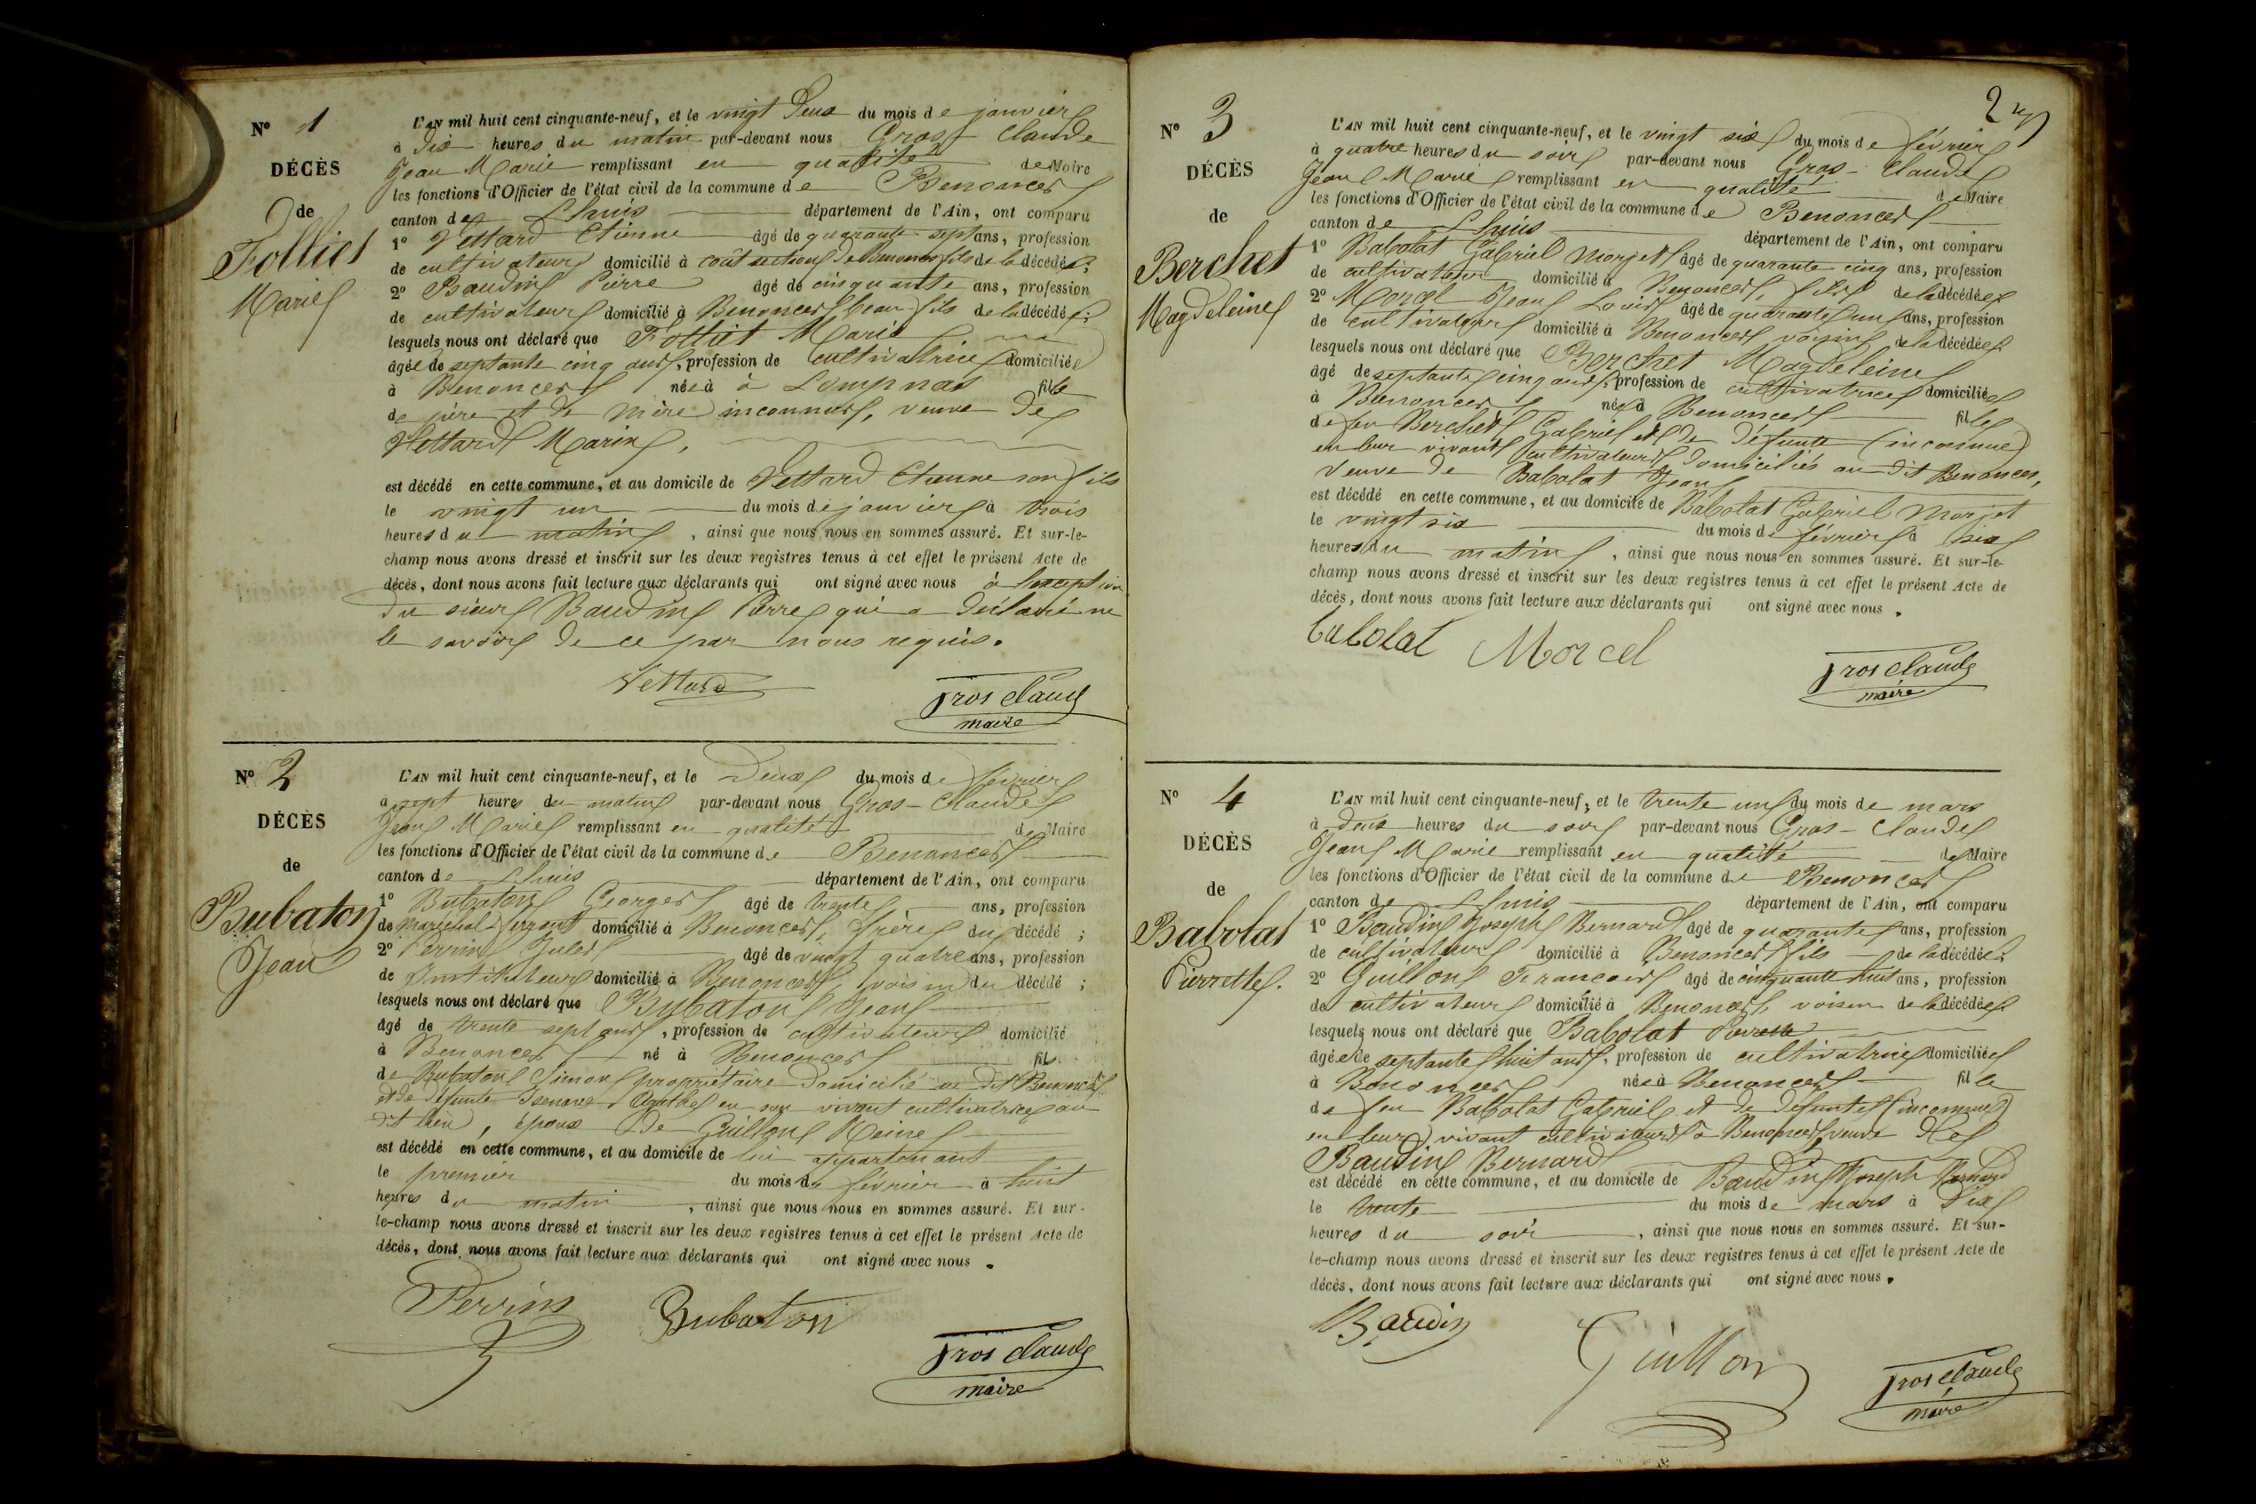 Nº 1
DÉCÈS
de
Folliet
Marie
L'AN mil huit cent cinquante-neuf, et le vingt deux du mois de janvier
à dix heures du matin par-devant nous Gros-Claude
Jean Marie remplissant en qualité de Maire
les fonctions d'Officier de l'état civil de la commune de Benonces
canton de Lhuis département de l'Ain, ont comparu
1º Vettard Etienne âgé de quarante sept ans, profession
de cultivateur domicilié à section de Benonces fils de la décédée;
2º Baudin Pierre âgé de cinquante ans, profession
de cultivateur domicilié à Benonces beau fils de la décédée;
lesquels nous ont déclaré que Folliet Marie
âgée de septante cinq ans, profession de cultivatrice domiciliée
à Benonces née à à Lompnas fille
de père et de mère inconnus, veuve de
Vettard Marin,
est décédé en cette commune, et au domicile de Vettard Etienne son fils
le vingt un du mois de janvier à trois
heures du matin, ainsi que nous nous en sommes assuré. Et sur-le-
champ nous avons dressé et inscrit sur les deux registres tenus à cet effet le présent Acte de
décès, dont nous avons fait lecture aux déclarants qui ont signé avec nous à l'exception
du sieur Baudin Pierre qui a déclaré ne
le savoir de ce par nous requis.
Vettard
Gros Claude
maire
Nº 2
DÉCÈS
de
Bubaton
Jean
L'AN mil huit cent cinquante-neuf, et le deux du mois de février
à sept heures du matin par-devant nous Gros-Claude
Jean Marie remplissant en qualité de Maire
les fonctions d'Officier de l'état civil de la commune de Benonces
canton de Lhuis département de l'Ain, ont comparu
1º Bubaton Georges âgé de trente ans, profession
de Maréchal domicilié à Benonces, frère du décédé;
2º Perrin Jules âgé de vingt quatre ans, profession
de Instituteur domicilié à Benonces, voisin du décédé;
lesquels nous ont déclaré que Bubaton Jean
âgé de trente sept ans, profession de cultivateur domicilié
à Benonces né à Benonces fils
de Bubaton Simon propriétaire domicilié au dit Benonces
et de défunte en son vivant cultivatrice au
dit lieu, époux De Guillon Reine
est décédé en cette commune, et au domicile de lui appartenant
le premier du mois de février à huit
heures du matin, ainsi que nous nous en sommes assuré. Et sur-
le-champ nous avons dressé et inscrit sur les deux registres tenus à cet effet le présent Acte de
décès, dont nous avons fait lecture aux déclarants qui ont signé avec nous.
Perrin Bubaton
Gros Claude
maire
2
Nº 3
DÉCÈS
de
Berchet
Magdeleine
L'AN mil huit cent cinquante-neuf, et le vingt six du mois de février
à quatre heures du soir par-devant nous Gros-Claude
Jean Marie remplissant en qualité de Maire
les fonctions d'Officier de l'état civil de la commune de Benonces
canton de Lhuis département de l'Ain, ont comparu
1º Babolat Gabriel Morjet âgé de quarante cinq ans, profession
de cultivateur domicilié à Benonces, fils de la décédée
2º Morcel Jean Louis âgé de quarante un ans, profession
de cultivateur domicilié à Benonces voisin de la décédée
lesquels nous ont déclaré que Berchet Magdeleine
âgé de septante cinq ans, profession de cultivatrice domiciliée
à Benonces née à Benonces fille
de feu Berchet Gabriel et de défunte (inconnue)
en leur vivant cultivateurs domiciliés au dit Benonces,
veuve de Babolat Jean
est décédé en cette commune, et au domicile de Babolat Gabriel Morjet
le vingt six du mois de février à six
heures du matin, ainsi que nous nous en sommes assuré. Et sur-le-
champ nous avons dressé et inscrit sur les deux registres tenus à cet effet le présent Acte de
décès, dont nous avons fait lecture aux déclarants qui ont signé avec nous.
Babolat Morcel
Gros Claude
maire
Nº 4
DÉCÈS
de
Babolat
Pierrette.
L'AN mil huit cent cinquante-neuf, et le trente un du mois de mars
à deux heures du soir par-devant nous Gros-Claude
Jean Marie remplissant en qualité de Maire
les fonctions d'Officier de l'état civil de la commune de Benonces
canton de Lhuis département de l'Ain, ont comparu
1º Baudin Joseph Bernard âgé de quarante ans, profession
de cultivateur domicilié à Benonces fils de la décédée;
2º Guillon François âgé de cinquante huit ans, profession
de cultivateur domicilié à Benonces, voisin de la décédée
lesquels nous ont déclaré que Babolat Pierrette
âgée de septante huit ans, profession de cultivatrice domiciliée
à Benonces née à Benonces fille
de feu Babolat Gabriel et de défunte (inconnue)
en leur vivant cultivateurs à Benonces veuve de
Baudin Bernard
est décédé en cette commune, et au domicile de Baudin Joseph Bernard
le trente du mois de mars à dix
heures du soir, ainsi que nous nous en sommes assuré. Et sur-
le-champ nous avons dressé et inscrit sur les deux registres tenus à cet effet le présent Acte de
décès, dont nous avons fait lecture aux déclarants qui ont signé avec nous.
Baudin
Guillon
Gros Claude
maire